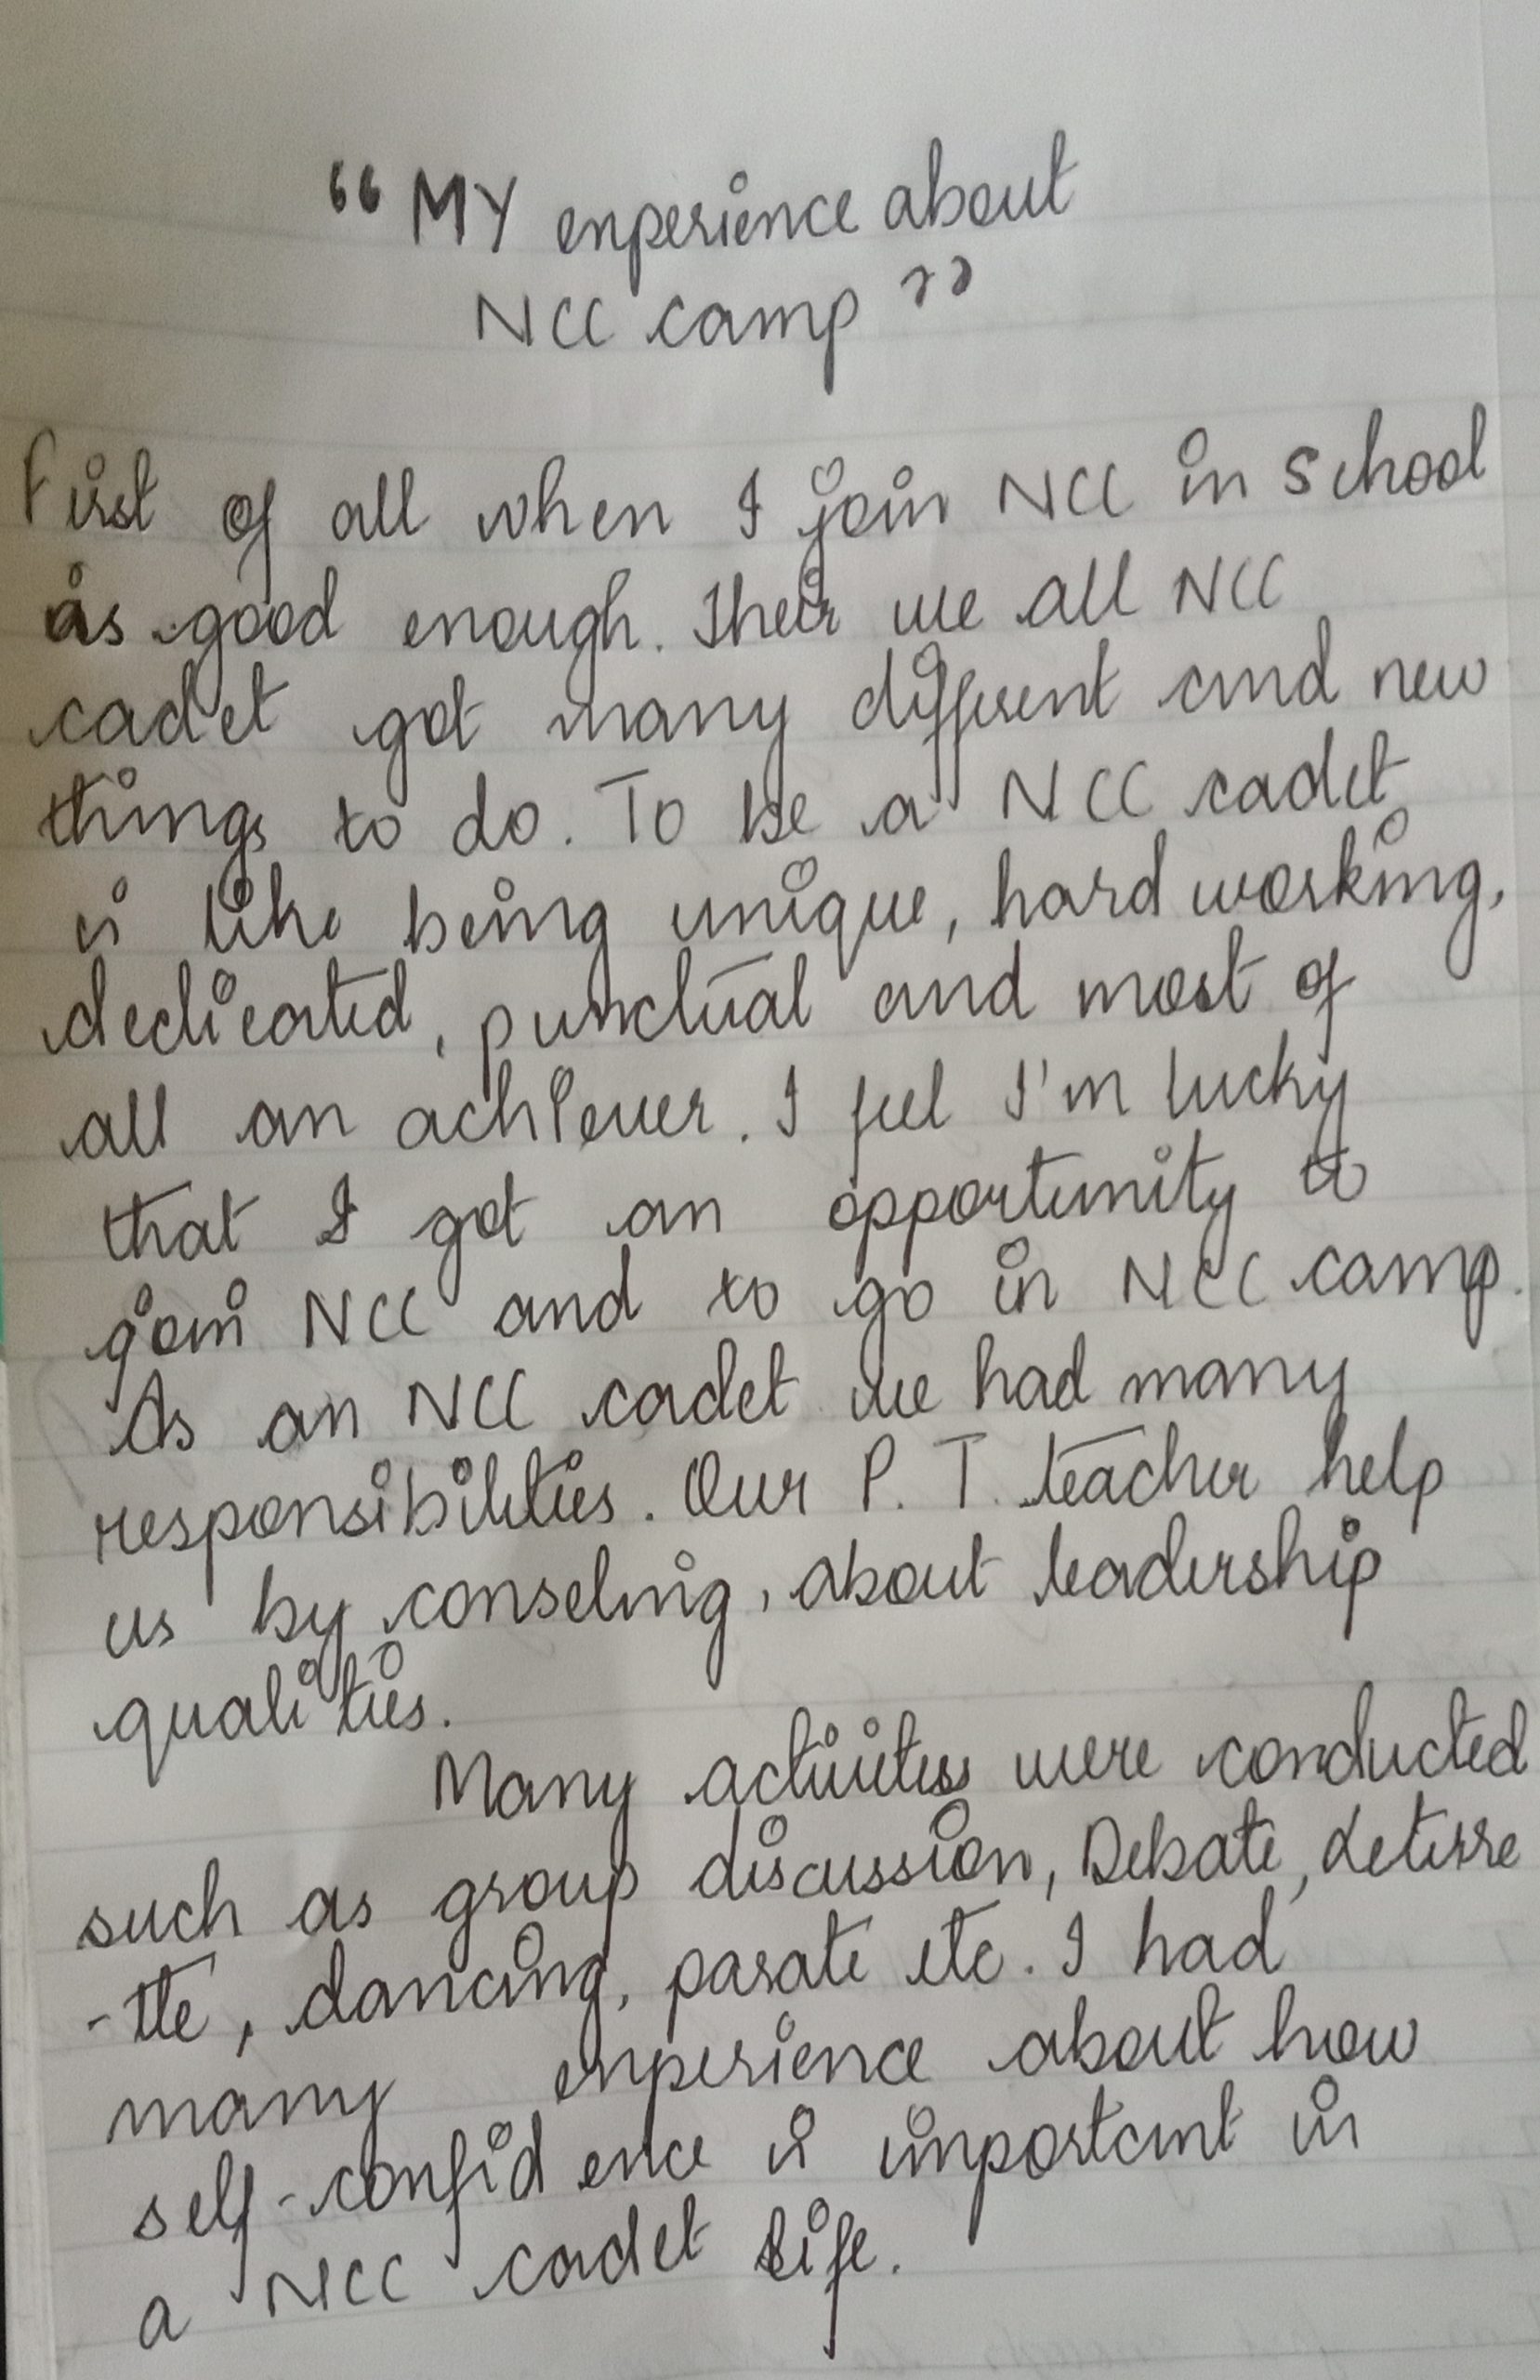 “ MY enperience about
NCC camp ”
First of all when I join NCC in school
is good enough. Their we all NCC
cadet got many different and new
things to do. To be a NCC cadet
is like being unique, hard working,
dedicated, punctual and most of
all an achiever. I feel I'm lucky
that I got an opportunity to
join NCC and to go in NCC camp.
As an NCC cadet we had many
responsibilities. Our P. T. teacher help
us by conseling, about leadership
qualities.
Many activities were conducted
such as group discussion, Debate,
-tte, dancing, parate etc. I had
many enperience about how
self-confidence is important in
a NCC cadet life.